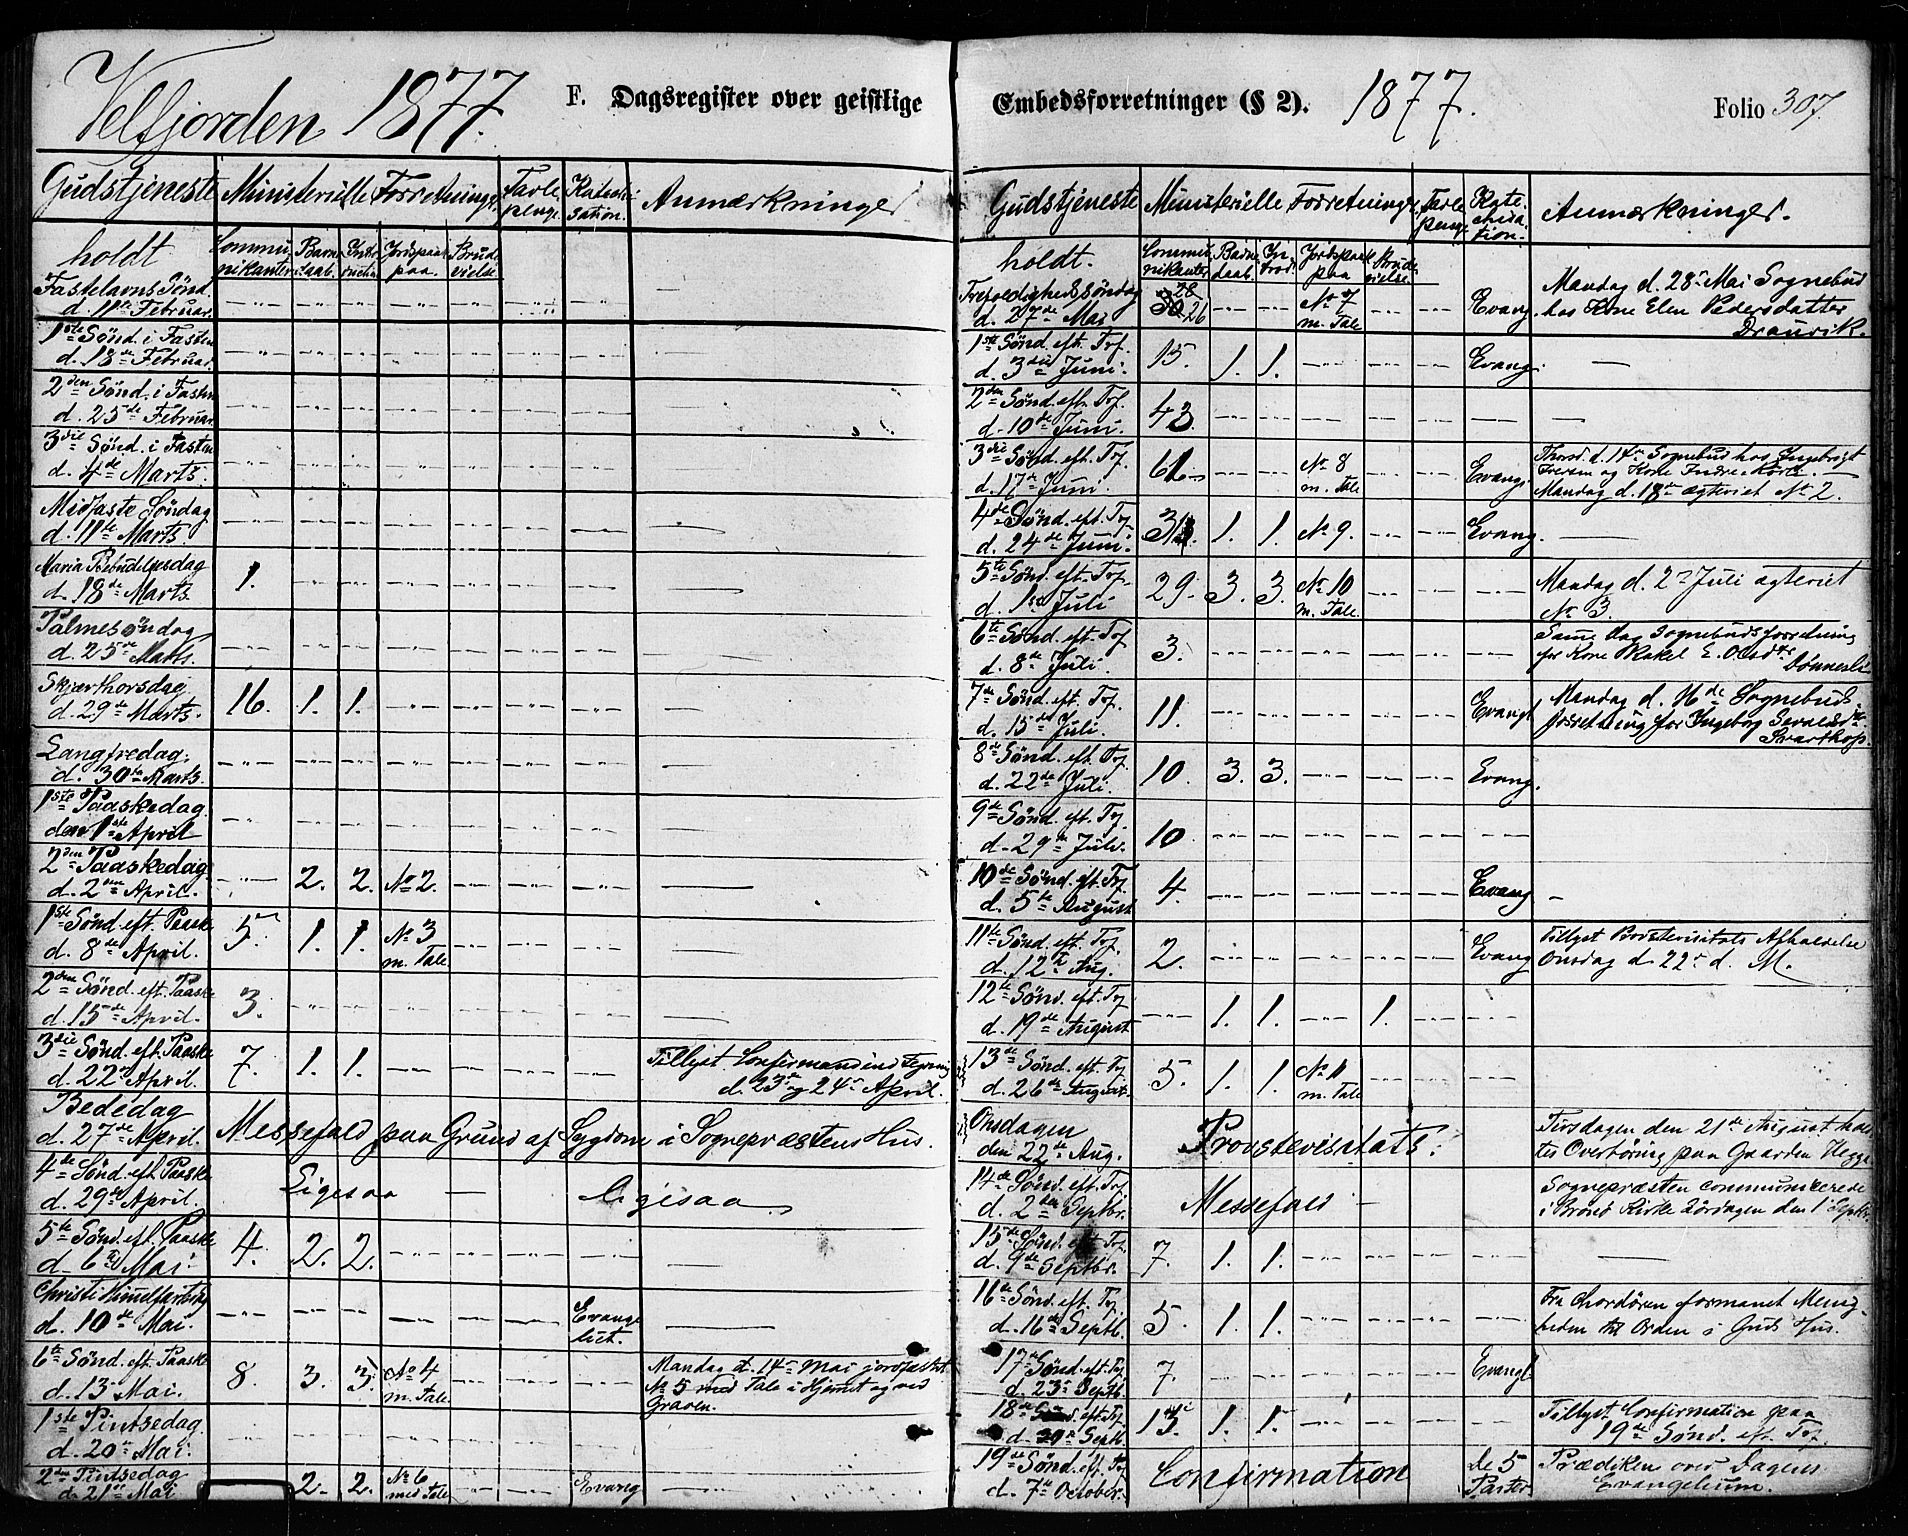 Velfjorden 1877. F. Dagsregister over geistlige
Gudstjeneste Ministerielle Forretninger Tavle penge Katechi sation. Anmærkninger
holdt Communikanter Barne daab. Introduction Jordspaa paa. Brude vielse
Fastelavns Sønd. d. 11te Februar.
1ste Sønd. i Fasten d. 18de Februar.
2den Sønd. i Fasten d. 25de Februar.
3die Sønd. i Fasten d. 4de Marts.
Midfaste Søndag d. 11te Marts.
Maria Bebudelsesdag d. 18de Marts. 1.
Palmesøndag d. 25de Marts.
Skjærthorsdag d. 29de Marts. 16. 1. 1.
Langfredag. d. 30te Marts.
1ste Paaskedag den 1ste April
2den Paaskedag. d. 2den April. 2. 2. No 2.
1ste Sønd. eft. Paaske d. 8de April. 5. 1. 1. No 3 m. Tale
2den Sønd. eft. Paaske d. 15de April. 3.
3die Sønd. eft. Paaske d. 22n April. 7. 1. 1. Tillyst Confirmandind d. 23de og 24de April.
Bededag d. 27de April. Messefald paa Grund af Sygdom i Sognepræstens Hus.
4de Sønd. eft. Paaske d. 29de April. Ligesaa — Ligesaa
5te Sønd. eft. Paaske d. 6te Mai. 4. 2. 2.
Christi Himmelfartsdag d. 10de Mai. Evange liet.
6te Sønd. eft. Paaske d. 13de Mai. 8. 3. 3. No 4 m. Tale Mandag d. 14de Mai jordfæstet
No 5 med Tale i Hjemet og ved
Graven.
1ste Pintsedag d. 20de Mai.
2den Pintsedag d. 21de Mai 2. 2. No 6 med Tale Evang
Embedsforretninger (§ 2). 1877. Folio 307.
Gudstjeneste Ministerielle Forretninger Tavle penge Anmærkninger.
holdt. Communikanter Barne daab. Introd. Jordspaa paa Brude vielse.
Trefoldighedssøndag d. 27de Mai 30 28 26 No 7 m. Tale Evang. Mandag d. 28de Mai Sognebud
hos Kone Elen Pedersdatter
1ste Sønd. eft. Tref. d. 3die Juni. 15. 1. 1. Evang. —
2den Sønd. eft. Tref. d. 10de Juni. 43. —
3die Sønd. eft. Tref. d. 17de Juni. 61 No 8 m. Tale Evang. Thorsd. d. 14de Sognebud hos Ingebrigt
Iversen og Kone
Mandag d. 18de ægteviet No 2.
4de Sønd. eft. Tref. d. 24de Juni. 1. 1. No 9. Evang. —
5te Sønd. eft. Tref. d. 1ste Juli 29. 3. 3. No 10 m. Tale. Mandag d. 2n Juli ægteviet
No 3.
6te Sønd. eft. Tref. d. 8de Juli. 3. Samme Dag Sognebudsforretning
for Kone Rakel E. Olsdtr
7de Sønd. eft. Tref. d. 15de Juli. 11. Evangl Mandag d. 16de Sognebuds
forretning for Ingeborg
Svarthop.
8de Sønd. eft. Tref. d. 22de Juli. 10. 3. 3. Evang.
9de Sønd. eft. Tref. d. 29de Juli. 10.
10de Sønd. eft. Tref. d. 5te August 4. Evang —
11te Sønd. eft. Tref. d. 12te Aug. 2. Evang Tillyst Provstevisitats Afholdelse
Onsdag d. 22de d. M.
12te Sønd. eft. Tref. d. 19de August 1. 1. 1.
13de Sønd. eft. Tref. d. 26de August. 5. 1. 1. No 11 m. Tale
Onsdagen den 22de Aug. Provstevisitats. Tirsdagen den 21de August
Overhøring paa Gaarden Hegge.
14de Sønd. eft. Tref. d. 2den Septbr. Messefald — Sognepræsten communicerede
i Brønø Kirke Lørdagen den 1ste Septbr.
15de Sønd. eft. Tref. d. 9de Septbr. 7. 1. 1. —
16de Sønd. eft. Tref. d. 16de Septb. 5. 1. 1. Fra Chordøren formanet Menig-
heden til Orden i Guds Hus.
17de Sønd. eft. Tref. d. 23de Septb. 7. Evangl
18de Sønd. eft. Tref. d. 30te Septb. 13. 1. 1. Tillyst Confirmation paa
19de Sønd. eft. Tref.
19de Sønd. eft. Tref. d. 7de October. Confirmation De 5 Parter. Prædiken over Dagens
Evangelium.